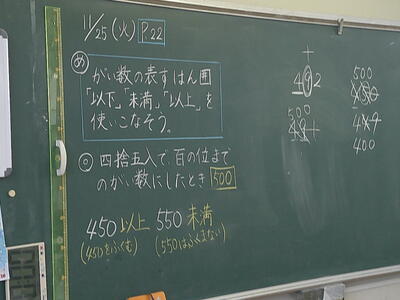 11/25(火) P.22
め がい数の表すはん囲
「以下」「未満」「以上」を
使いこなそう。
◎ 四捨五入で、百の位まで
のがい数にしたとき 500
450以上 550未満
(450をふくむ) (550はふくまない)
十
492
500
500
449
400